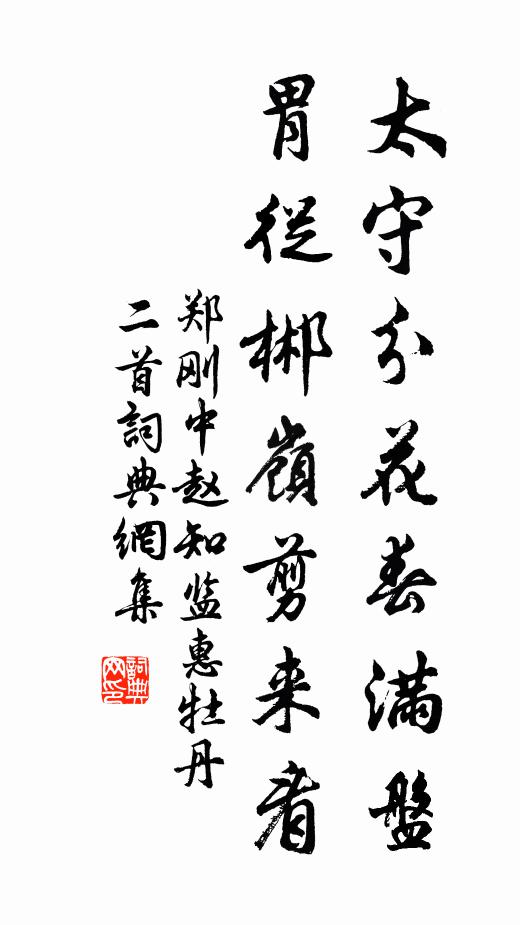 太守分花春满盤
胃從郴嶺剪来看
郑刚中赵知监惠牡丹
二首詞典網集
詞典网印